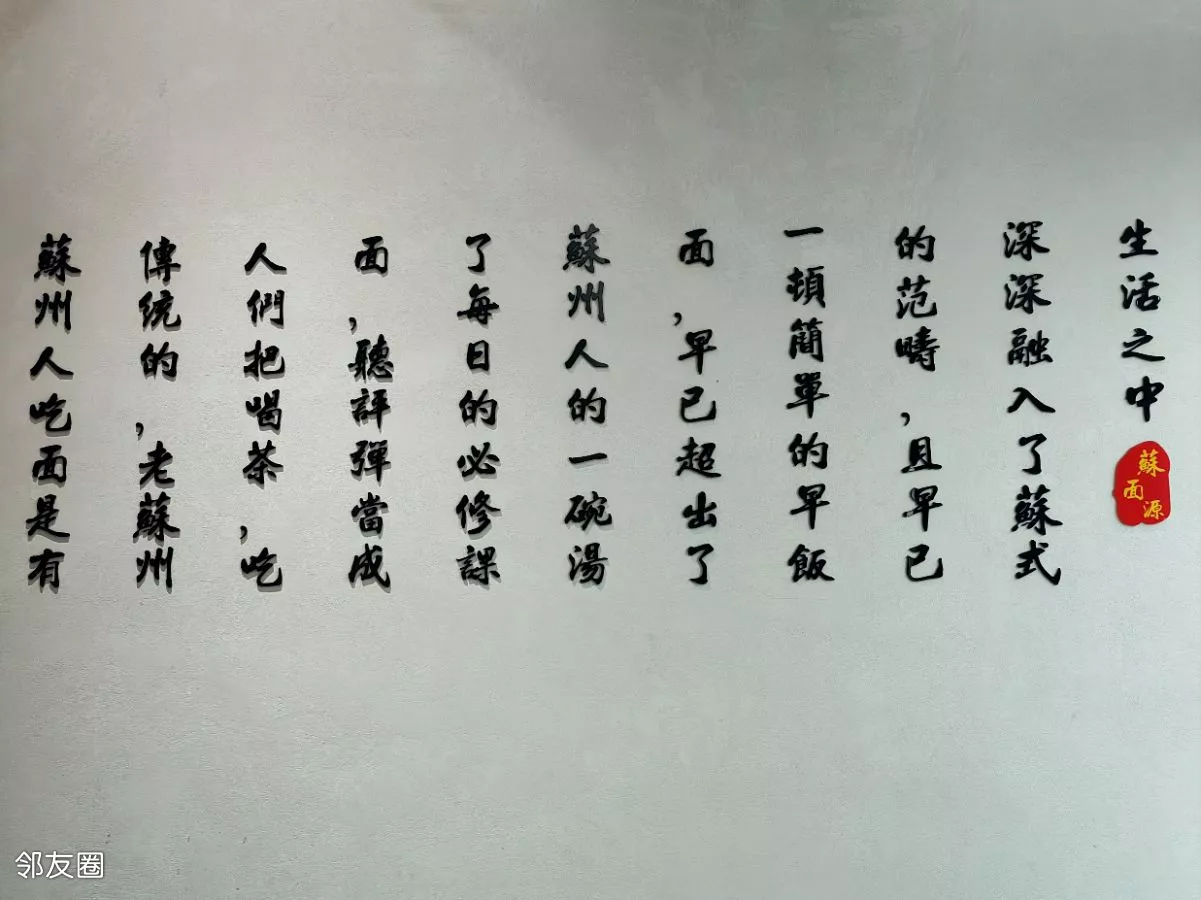 蘇州人吃面是有
傳统的,老蘇州
人們把喝茶,吃
面,聽評彈當成
了每日的必修課
蘇州人的一碗湯
面,早已超出了
一頓簡單的早飯
的范疇,且早已
深深融入了蘇式
生活之中
蘇面源
邻友圈